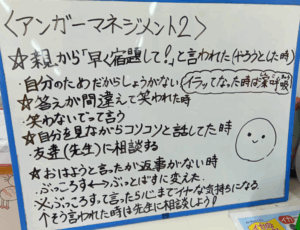 〈アンガーマネジメント2〉
☆親から「早く宿題して!」と言われた(やろうとした時)
・自分のためだからしょうがない イラッてなった時は深呼吸
☆答えが間違えて笑われた時
・笑わないでって言う
☆自分を見ながらコソコソと話してた時
・友達(先生)に相談する
☆おはようと言ったが返事がない時
・ぶっころす←→ぶっとばすに変えた。
※ぶっころすって言ったら心までイヤな気持ちになる
↑そう言われた時は先生に相談しよう!